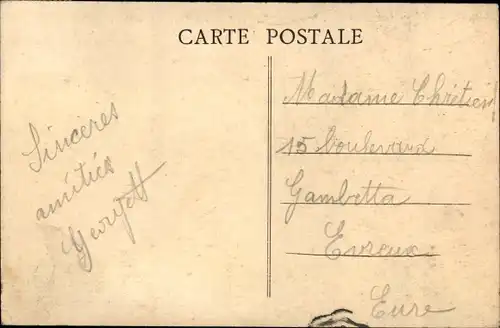 CARTE POSTALE
Sincères
amitiés
Madame Chrétien
15 boulevard
Gambetta
Evreux
Eure